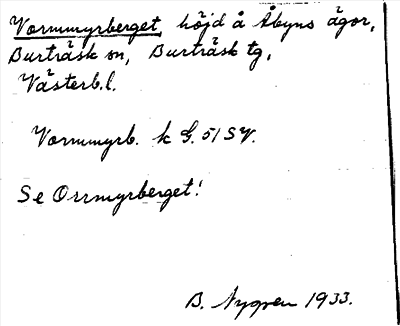 Vormmyrberget, höjd å Åbyns ägor,
Burträsk sn, Burträsk tg,
Västerb.l.
Vormmyrb. k G. 51 SV.
Se Orrmyrberget!
B. Nygren 1933.